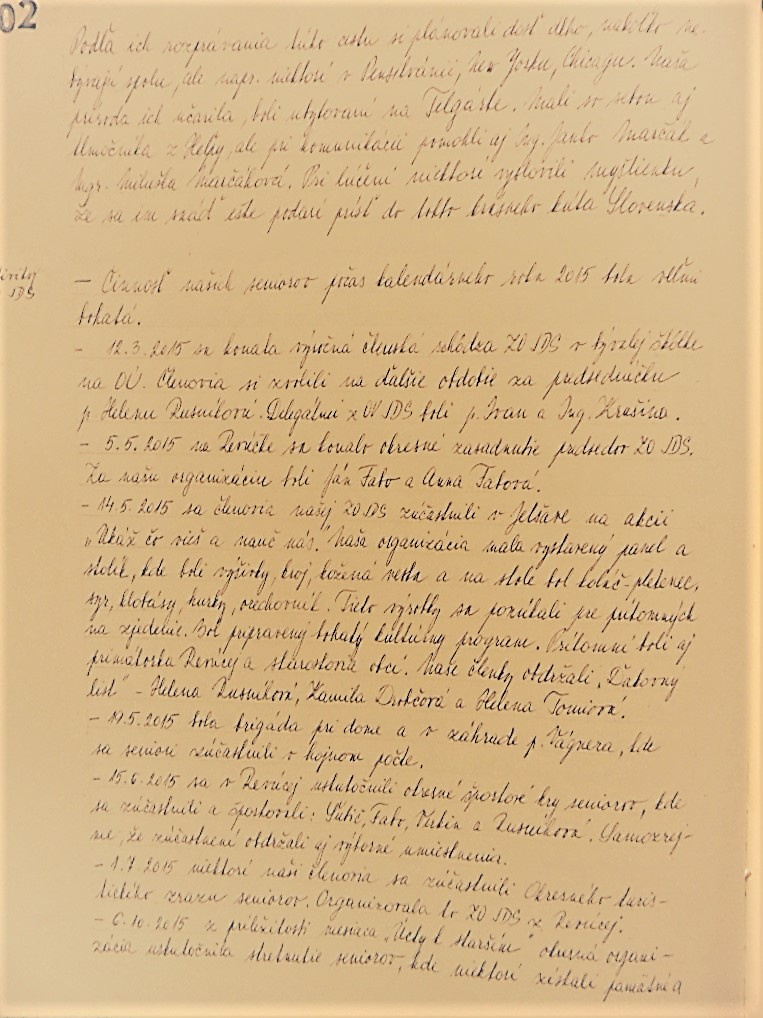 02
Podľa ich rozprávania túto cestu si plánovali dosť dlho, nakoľko ne-
bývajú spolu, ale napr. niektorí v Pensilvánii, New Yorku, Chicagu. Naša
príroda ich učarila, boli ubytovaní na Telgárte. Mali so sebou aj
tlmočníka z Heľpy, ale pri komunikácii pomohli aj Ing. Janko Marčák a
Mgr. Miluška Marčáková. Pri lúčení niektorí vyslovili myšlienku,
že sa im snáď ešte podarí prísť do tohto krásneho kúta Slovenska.
JDS
– Činnosť našich seniorov počas kalendárneho roku 2015 bola veľmi
bohatá.
- 12.3.2015 sa konala výročná členská schôdza ZO JDS v bývalej škôlke
na OÚ. Členovia si zvolili na ďalšie obdobie za predsedníčku
p. Helenu Rusnákovú. Delegátmi z OV JDS boli p. Ivan a Ing. Krašina.
- 5.5.2015 na Revúčke sa konalo okresné zasadnutie predsedov ZO JDS.
Za našu organizáciu boli Ján Fabo a Anna Fabová.
- 14.5.2015 sa členovia našej ZO JDS zúčastnili v Jelšave na akcii
„Ukáž čo vieš a nauč nás." Naša organizácia mala vystavený panel a
stolík, kde boli výšivky, kroj, kožená vesta a na stole bol koláč-pletenec,
syr, klobásy, hurky, orechovník. Tieto výrobky sa ponúkali pre prítomných
na zjedenie. Bol pripravený bohatý kultúrny program. Prítomní boli aj
primátorka Revúcej a starostovia obcí. Naše členky obdržali „Ďakovný
list" – Helena Rusnáková, Kamila Drobčová a Helena Tomiová.
- 19.5.2015 bola brigáda pri dome a v záhrade p. Vágnera, kde
sa seniori zúčastnili v hojnom počte.
- 15.6.2015 sa v Revúcej uskutočnili okresné športové hry seniorov, kde
sa zúčastnili a športovali: Fabo, a Rusnáková. Samozrej-
me, že zúčastnení obdržali aj výborné umiestnenia.
- 1.7 2015 niektorí naši členovia sa zúčastnili Okresného turis-
tického zrazu seniorov. Organizovala to ZO JDS z Revúcej.
- 6.10.2015 z príležitosti mesiaca „Úcty k starším" okresná organi-
zácia uskutočnila stretnutie seniorov, kde niektorí získali pamätné a